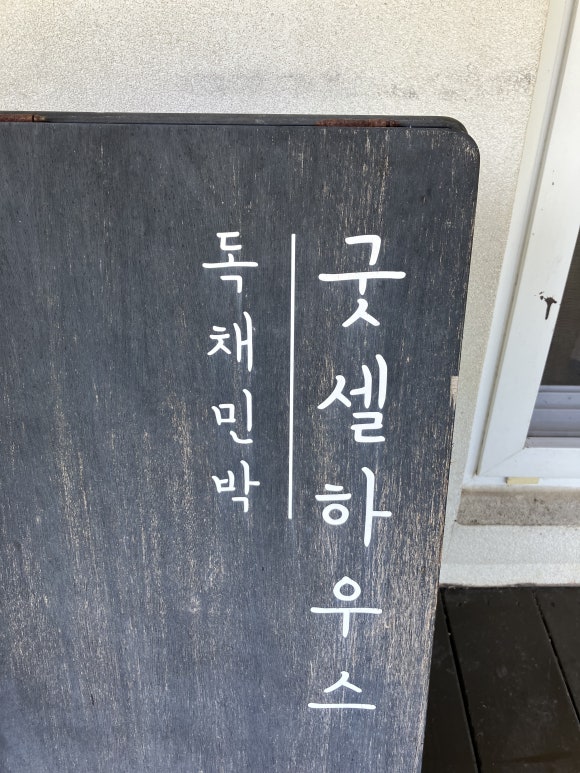 굿셀하우스
독채민박